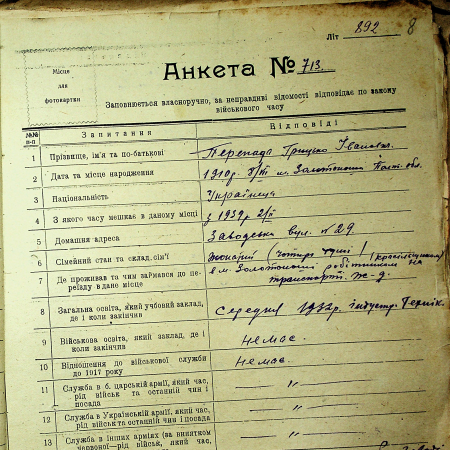 Літ 892 8
Місце
для
фотокартки
Анкета № 713.
Заповнюється власноручно, за неправдиві відомості відповідає по закону
військового часу
№№ п-п Запитання Відповіді
1 Прізвище, ім'я та по-батькові Грицько Іванович
2 Дата та місце народження 1910р. м. Золотоноша Полт. обл.
3 Національність Українець
4 З якого часу мешкає в даному місті з 1939р.
5 Домашня адреса Заводська вул. № 29
6 Сімейний стан та склад сім'ї жонатий (чотири душі)
7 Де проживав та чим займався до пе-
реїзду в дане місце в м. Золотоноші робітником на
транспорті ж-д.
8 Загальна освіта, який учбовий заклад,
де і коли закінчив Середня 1932р. індустр. технік.
9 Військова освіта, який заклад, де і
коли закінчив немає.
10 Відношення до військової служби
до 1917 року Немає.
11 Служба в б. царській армії, який час,
рід військ та останній чин і
посада — „ —
12 Служба в Українській армії, який час,
рід військ та останній чин і посада — „ —
13 Служба в інших арміях (за винятком
червоної—рід військ, який час,